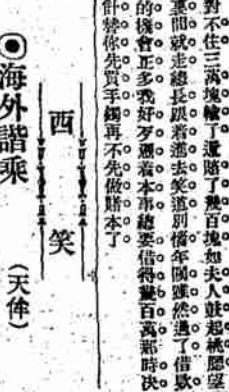 對不住三萬塊輸了還賠了幾百塊如夫人鼓起桃腮望
裏間就走總長跟着進去笑道別惱年關雖然過了借款
的機會正多我好歹憑着本事總要借得幾百萬那時決
計替你先買手鐲再不先做賭本了
西笑
◉海外諧乘
(天侔)